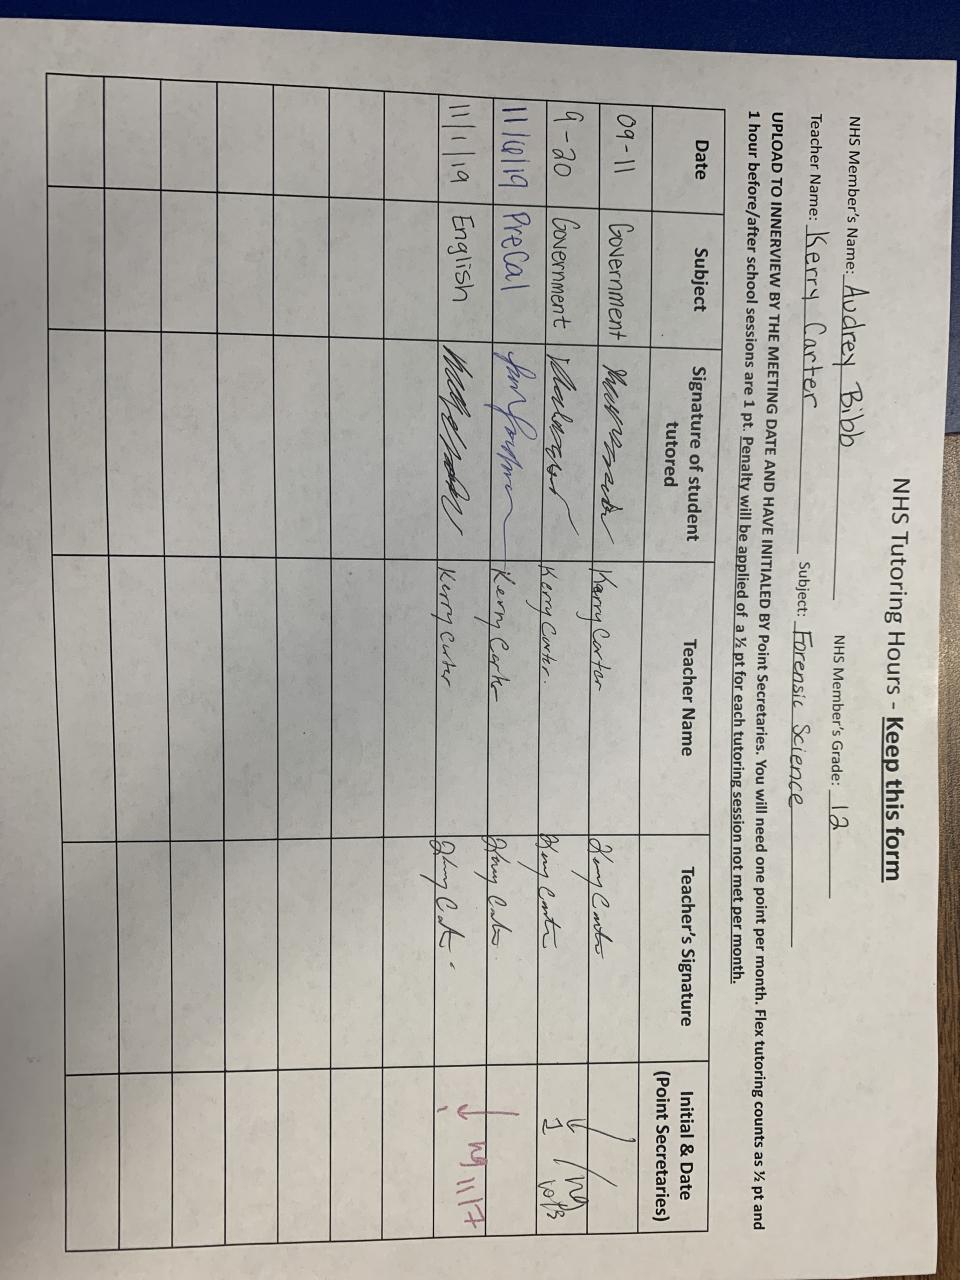 NHS Tutoring Hours - Keep this form
NHS Member's Name: Audrey Bibb NHS Member's Grade: 12
Teacher Name: Kerry Carter Subject: Forensic Science
UPLOAD TO INNERVIEW BY THE MEETING DATE AND HAVE INITIALED BY Point Secretaries. You will need one point per month. Flex tutoring counts as ½ pt and
1 hour before/after school sessions are 1 pt. Penalty will be applied of a ½ pt for each tutoring session not met per month.
Date Subject Signature of student tutored Teacher Name Teacher's Signature Initial & Date (Point Secretaries)
09-11 Government Kerry Carter Kerry Carter
9-20 Government Kerry Carter. Kerry Carter 1
Precal Kerry Carter Kerry Carter
11/1/19 English Kerry Carter Kerry Carter 11/7